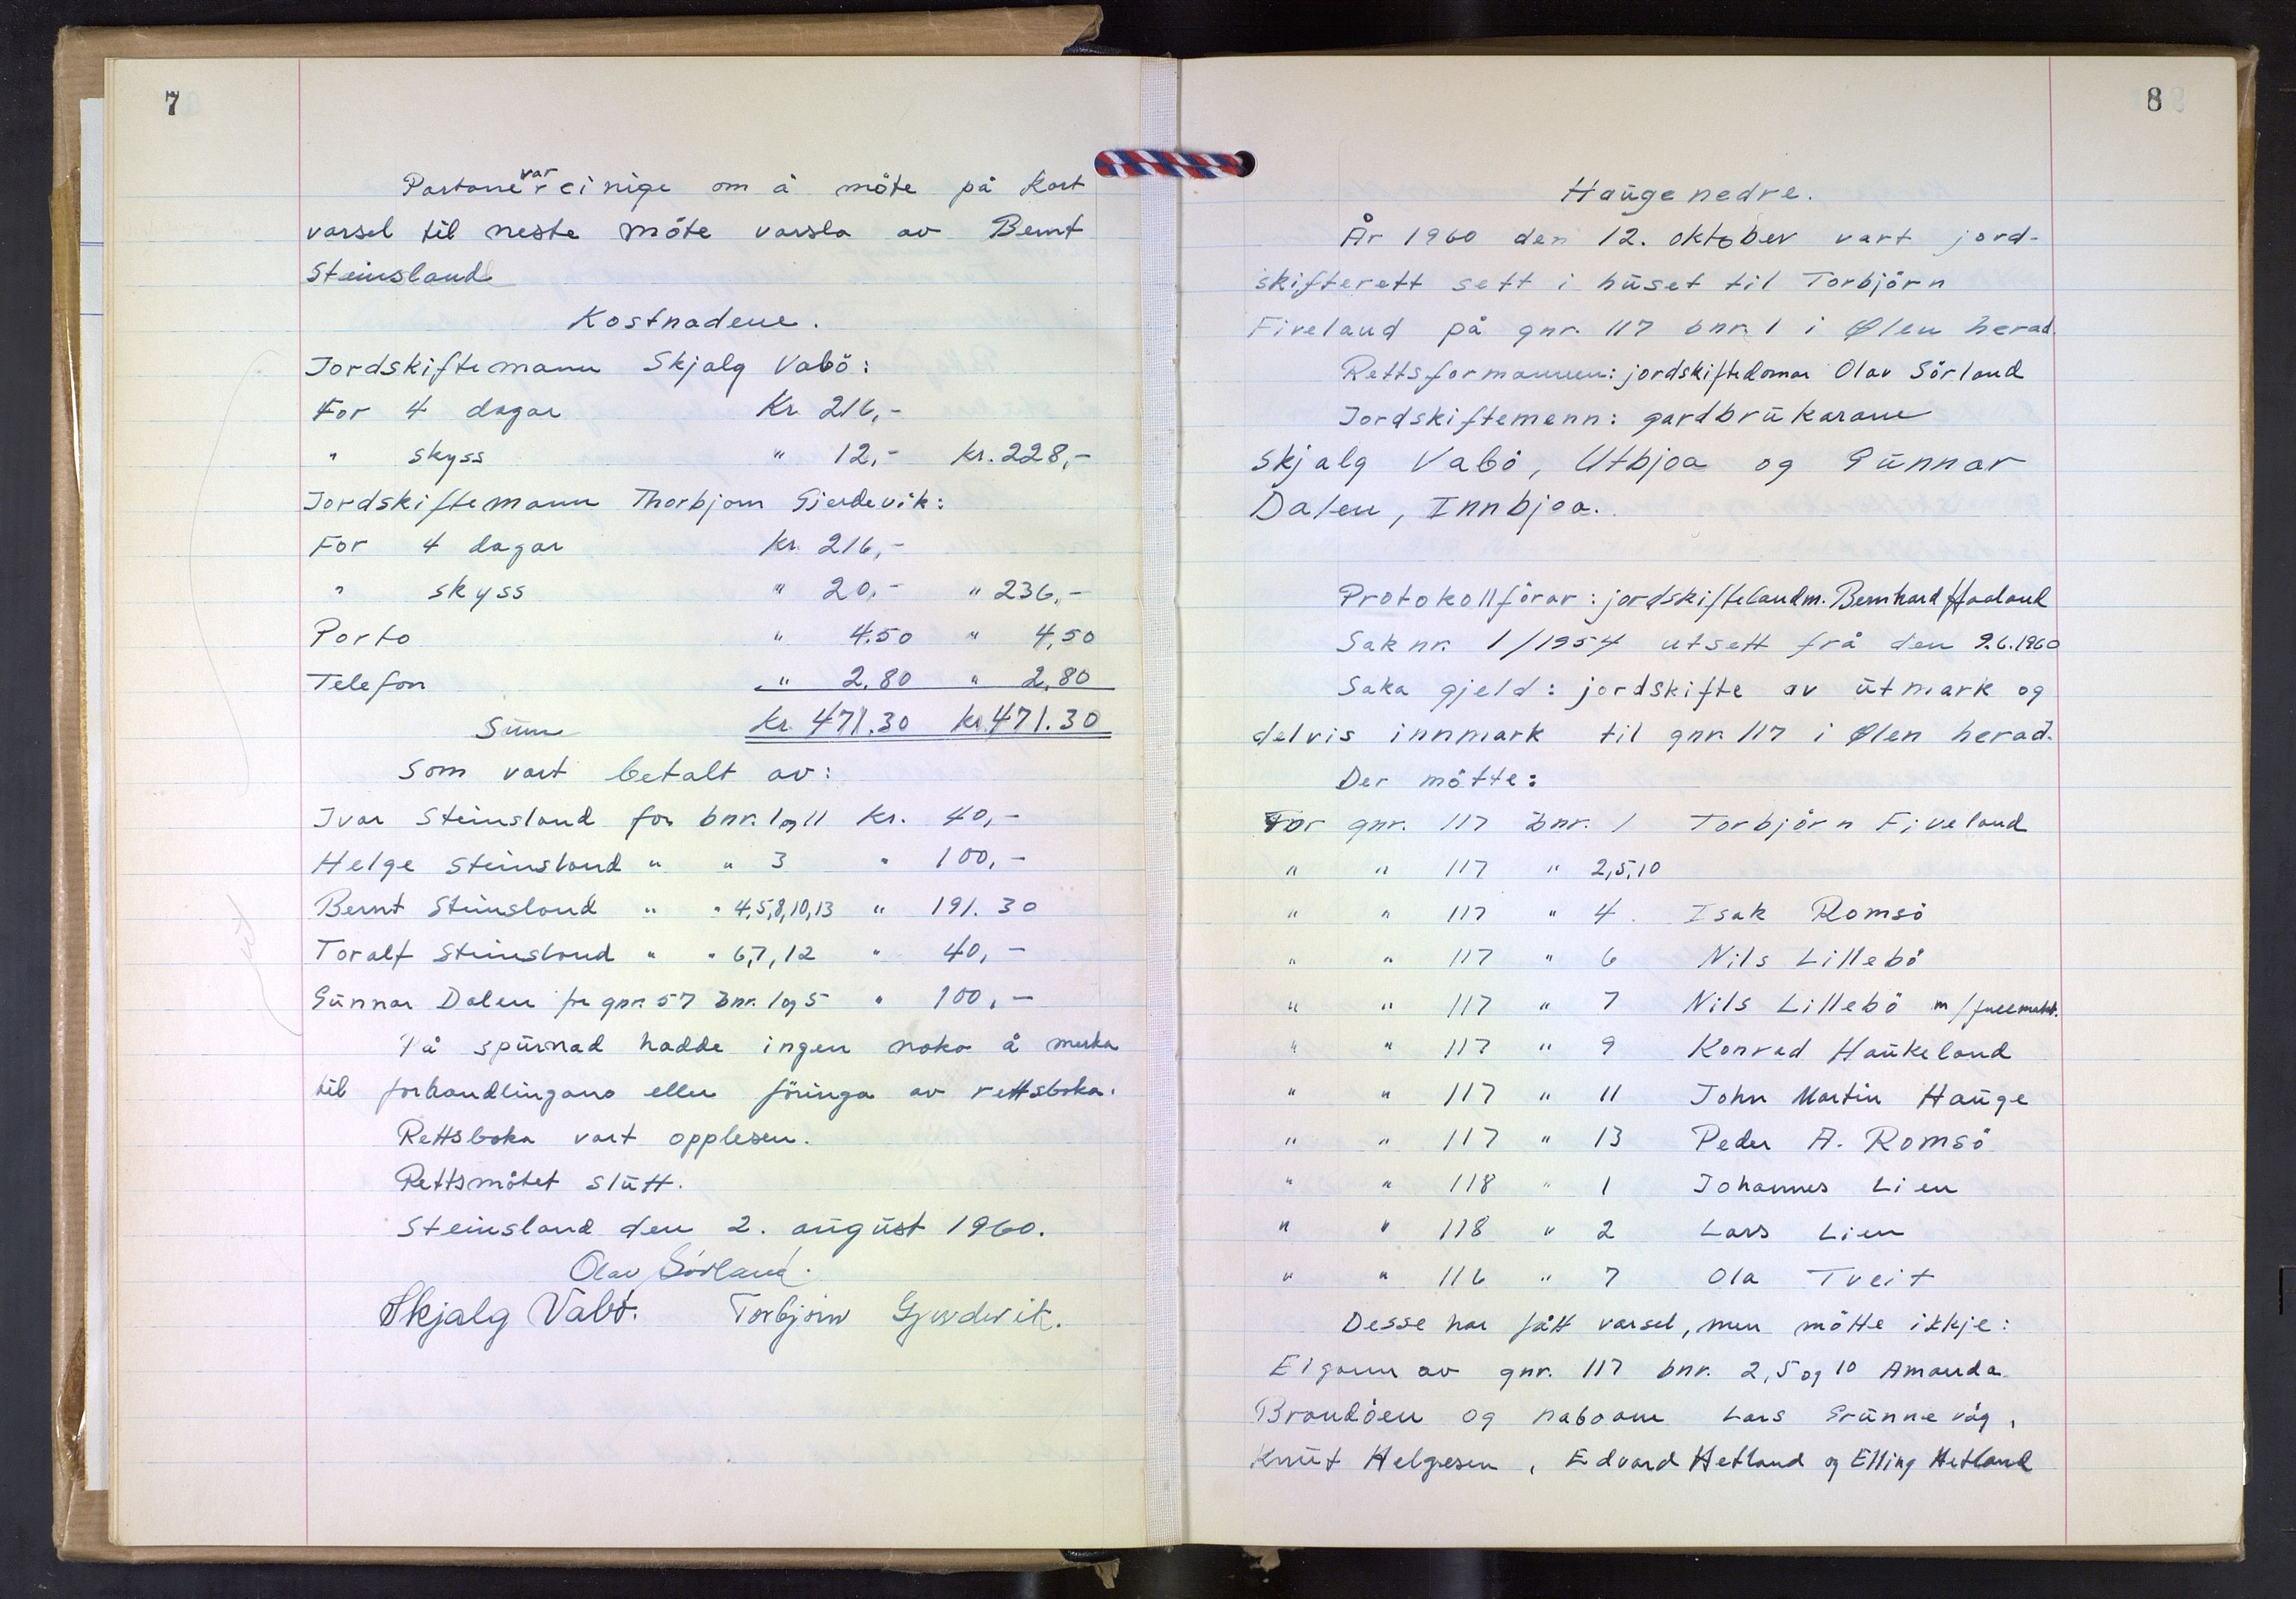 7
Partane var einige om å möte på kort
varsel til neste möte varsla av Bernt
Steinsland
Kostnadene.
Jordskiftemann Skjalg Vabö:
For 4 dagar Kr. 216,-
" skyss " 12,- kr. 228,-
Jordskiftemann Thorbjorn Gjerdevik:
For 4 dagar kr. 216,-
" skyss " 20,- " 236,-
Porto " 4.50 " 4,50
Telefon " 2.80 " 2,80
Sum kr. 471.30 kr. 471.30
Som vart betalt av:
Ivar Steinsland for bnr. 1 og 11 kr. 40,-
Helge Steinsland " " 3 " 100,-
Bernt Steinsland " " 4,5,8,10,13 " 191.30
Toralf Steinsland " " 6,7,12 " 40,-
Gunnar Dalen for gnr. 57 bnr. 1 og 5 " 100,-
På spurnad hadde ingen noko å merka
til forhandlingane eller föringa av rettsboka.
Rettsboka vart opplesen.
Rettsmötet slutt.
Steinsland den 2. august 1960.
Olav Sörland.
Skjalg Vabö. Torbjörn Gjerdevik.
8
Hauge nedre.
År 1960 den 12. oktober vart jord-
skifterett sett i huset til Torbjörn
Fiveland på gnr. 117 bnr. 1 i Ølen herad.
Rettsformannen: jordskiftedomar Olav Sörland
Jordskiftemenn: gardbrukarane
Skjalg Vabö, Utbjoa og Gunnar
Dalen, Innbjoa.
Protokollförar: jordskiftelandm. Bernhard Haaland
Sak nr. 1/1954 utsett frå den 9.6.1960
Saka gjeld: jordskifte av utmark og
delvis innmark til gnr. 117 i Ølen herad.
Der mötte:
For gnr. 117 bnr. 1 Torbjörn Fiveland
" " 117 " 2,5,10
" " 117 " 4. Isak Romsö
" " 117 " 6 Nils Lillebö
" " 117 " 7 Nils Lillebö m/fullmakt.
" " 117 " 9 Konrad Haukeland
" " 117 " 11 John Martin Hauge
" " 117 " 13 Peder A. Romsö
" " 118 " 1 Johannes Lien
" " 118 " 2 Lars Lien
" " 116 " 7 Ola Tveit
Desse har fått varsel, men mötte ikkje:
Eigaren av gnr. 117 bnr. 2, 5 og 10 Amanda
Brandöen og naboane Lars Grunnevåg,
Knut Helgesen, Edvard Hetland og Elling Hetland